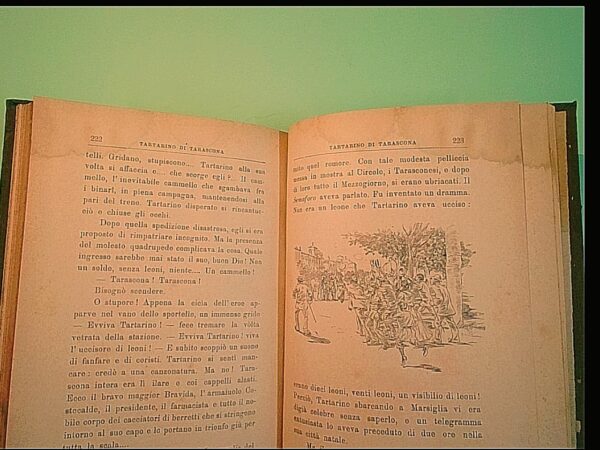 222
TARTARINO DI TARASCONA
telli. Gridano, stupiscono.... Tartarino alla sua
volta si affaccia e.... che scorge egli?... Il cam-
mello, l'inevitabile cammello che sgambava fra
i binarî, in piena campagna, mantenendosi alla
pari del treno. Tartarino disperato si rincantuc-
ciò e chiuse gli occhi.
Dopo quella spedizione disastrosa, egli si era
proposto di rimpatriare incognito. Ma la presenza
del molesto quadrupede complicava la cosa. Quale
ingresso sarebbe mai stato il suo, buon Dio! Non
un soldo, senza leoni, niente.... Un cammello!
— Tarascona! Tarascona!
Bisognò scendere.
O stupore! Appena la cicia dell'eroe ap-
parve nel vano dello sportello, un immenso grido
— Evviva Tartarino! — fece tremare la volta
vetrata della stazione. — Evviva Tartarino! viva
l'uccisore di leoni! — E subito scoppiò un suono
di fanfare e di coristi. Tartarino si sentì man-
care: credè a una canzonatura. Ma no! Taras-
cona intera era lì ilare e coi cappelli alzati.
Ecco il bravo maggior Bravida, l'armaiuolo Co-
stecalde, il presidente, il farmacista e tutto il no-
bile corpo dei cacciatori di berretti che si stringono
intorno al suo capo e lo portano in trionfo giù per
tutta la scala....
TARTARINO DI TARASCONA
223
quel romore. Con tale modesta pelliccia
messa in mostra al Circolo, i Tarasconesi, e dopo
di loro tutto il Mezzogiorno, si erano ubriacati. Il
Semaforo aveva parlato. Fu inventato un dramma.
Non era un leone che Tartarino aveva ucciso:
erano dieci leoni, venti leoni, un visibilio di leoni!
Perciò, Tartarino sbarcando a Marsiglia vi era
digià celebre senza saperlo, e un telegramma
entusiasta lo aveva preceduto di due ore nella
sua città natale.